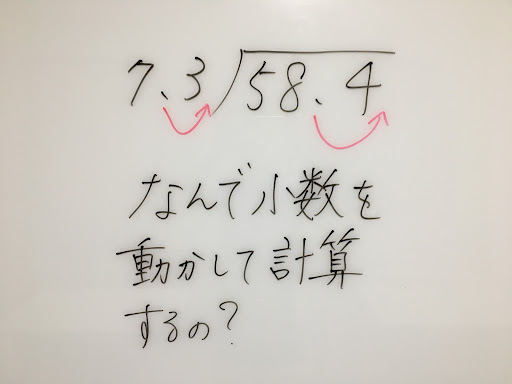 7.3)58.4
なんで小数を
動かして計算
するの?